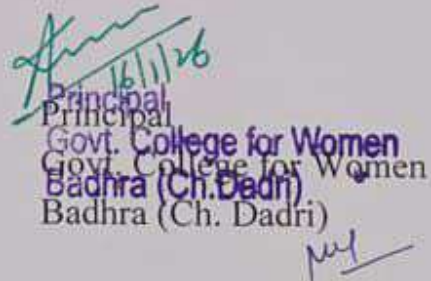 16/1/26
Principal
Principal
Govt. College for Women
Govt. College for Women
Badhra (Ch.Dadri)
Badhra (Ch. Dadri)